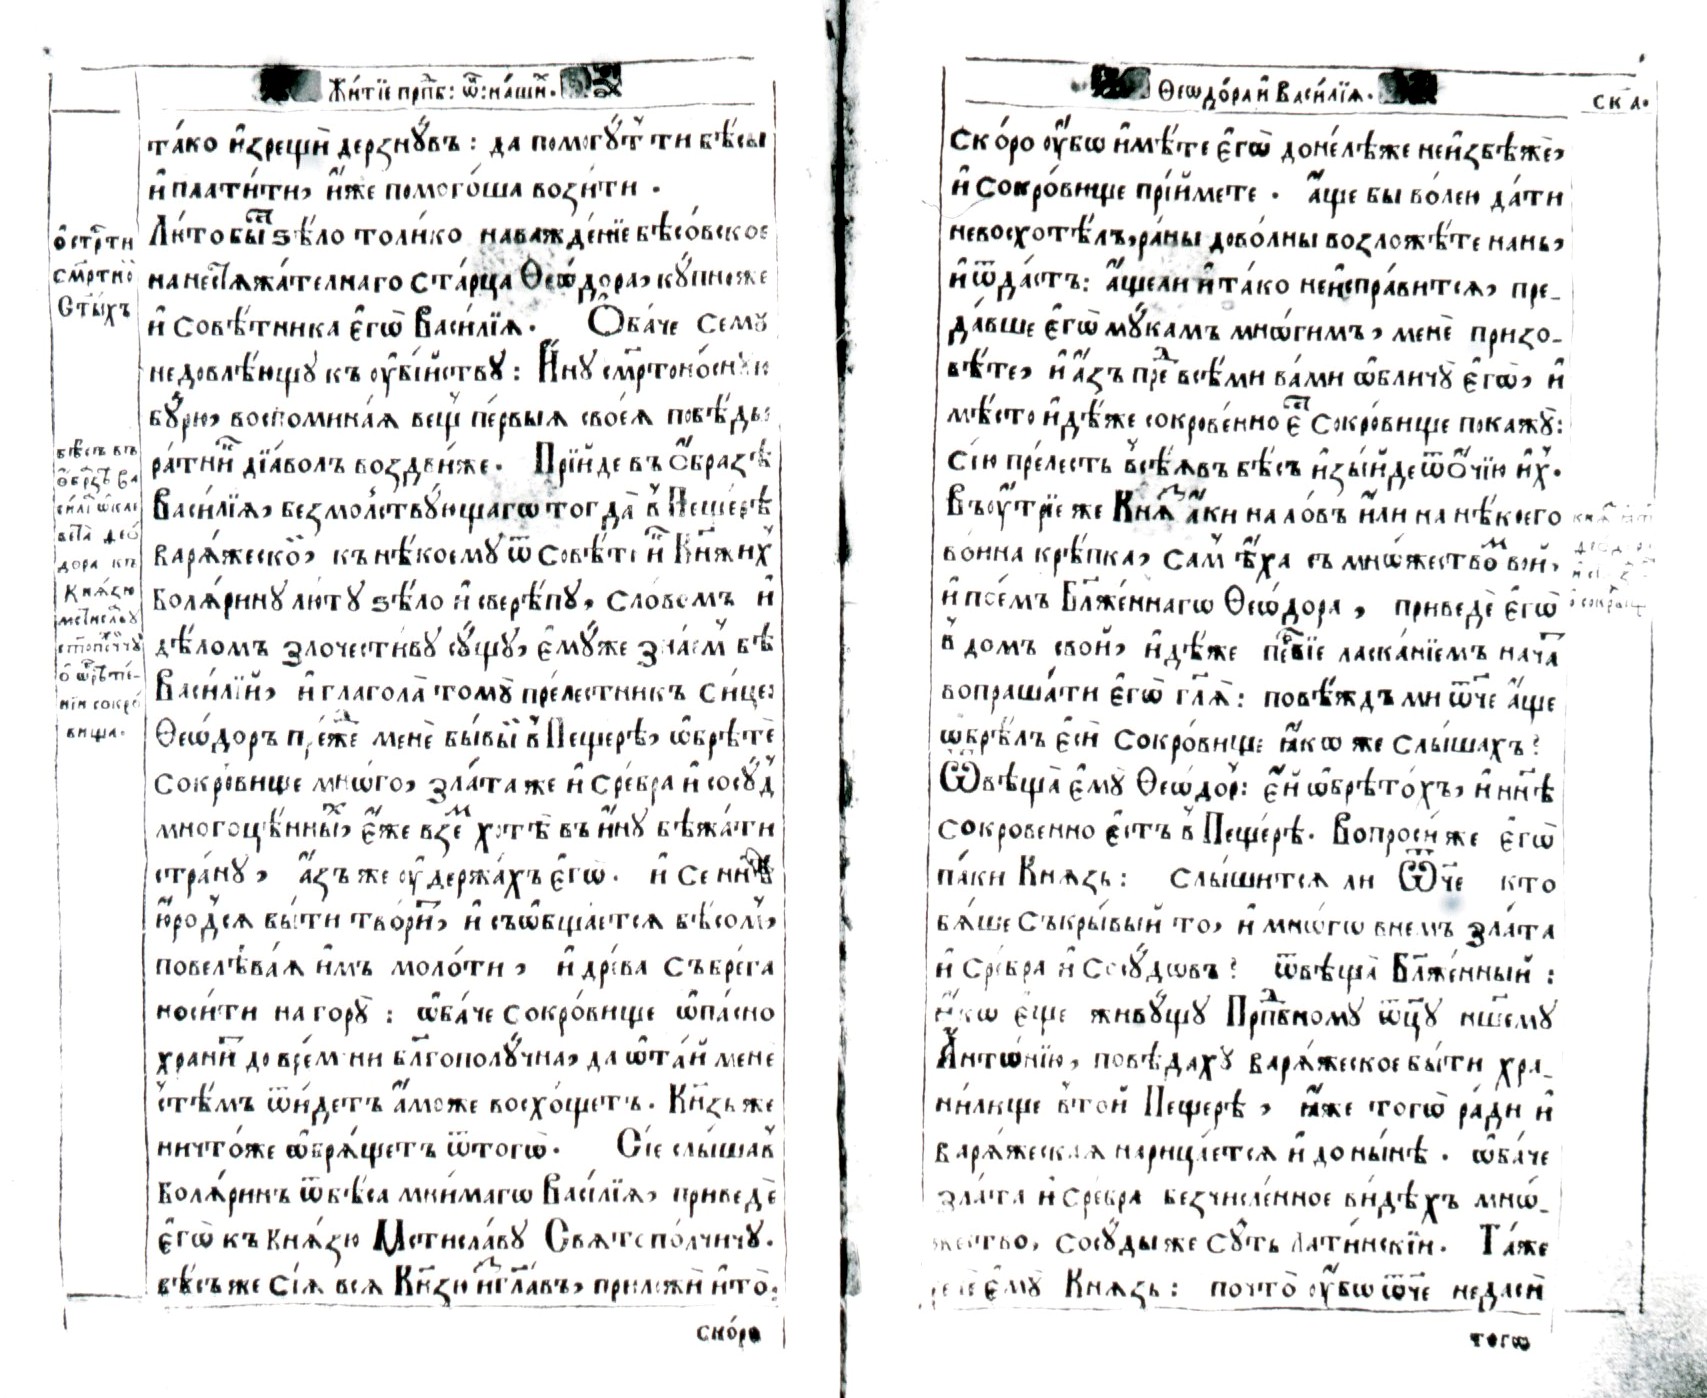 Житїе прпб: ѿ: на́ши.
та́ко и҆зрещѝ дерзнꙋ́въ: да помогꙋ́т ти бѣ́сы
и҆ плати́ти, и҆̀же помого́ша вози́ти.
Ли́то бы́ ѕѣ́ло толи́ко наважде́нїе бѣсо́вское
на нестѧжа́телнаго ста́рца Ѳео́дора, кꙋ́пно же
и҆ совѣ́тника є҆гѡ̀ Васи́лїѧ. Ѻ҆ба́че семꙋ̀
недовлѣ́ющꙋ къ ᲂу҆бі́йствꙋ: И҆́нꙋ смртоно́снꙋю
бꙋ́рю, воспомина́ѧ вещ пе́рвыѧ своеѧ̀ повѣ́ды
ра́тни дїа́волъ воздви́же. Прїйде въ ѻ҆́бразѣ
Васи́лїѧ, безмо́лствꙋющагѡ тогда̀ в Пеще́рѣ
варѧ́жеско, къ нѣ́коемꙋ ѿ совѣ́т Кнѧжи́х
Болѧ́ринꙋ лю́тꙋ ѕѣ́ло и҆ сверѣ́пꙋ, сло́вомъ и҆
дѣ́ломъ злочести́вꙋ сꙋ́щꙋ, є҆мꙋ́же зна́ем бѣ̀
Васи́лїй, и҆ глаго́ла томꙋ̀ преле́стникъ си́це:
Ѳео́доръ пре́жде менѐ бы́вы в Пеще́рѣ, ѡ҆брѣ́те
сокро́вище мно́го, зла́та же и҆ сребра̀ и҆ сосꙋ́д
многоцѣ́нны, є҆́же взем хотѣ̀ въ и҆́нꙋ бѣжа́ти
странꙋ̀, а҆́зъ же ᲂу҆держа́хъ є҆гѡ̀. и҆ се ннѣ
ю҆ро́дсѧ бы́ти твори́, и҆ съѡбща́етсѧ бѣсом,
повелѣва́ѧ и҆̀мъ моло́ти, и҆ древа̀ съ бре́га
носи́ти на горꙋ̀: ѡ҆ба́че сокро́вище ѡ҆па́сно
храни́ до вре́мени блгополꙋ́чна, да ѡ҆та́й менѐ
с тѣ́мъ ѿи́детъ а҆́може восхо́щетъ. Кнзь же
ничто́же ѡ҆брѧ́щетъ ѿ тогѡ̀. Сіе слы́шав
Болѧ́ринъ ѿ бѣ́са мни́магѡ Васи́лїѧ, приведѐ
є҆гѡ̀ къ Кнѧ́зю Мстисла́вꙋ Свѧтопо́лчичꙋ.
бѣ́съ же сіѧ̀ всѧ̀ Кнзю и҆гла́въ, приложѝ и҆ то̀:
ско́ро
ѡ҆ стр́ти
смртно
Сты́хъ
бѣ́съ въ
ѻ҆́брзѣ Ва
си́лї ѡклє
вета̀ Ѳео́
дора къ
Кнѧ́зю
Мстислꙋ
стопо́лчꙋ
о҆ ѡ҆брѣте́
нїи сокро́
вища.
Ѳеѡдо́ра и҆ Васи́лїѧ.
ска.
Ско́ро ᲂу҆́бѡ и҆мѣ́те є҆гѡ̀ до́нелѣже не и҆збѣжѐ,
и҆ сокро́вище прїи́мете. а҆́ще бы во́лею да́ти
не восхотѣ́лъ, ра́ны дово́лны возложѣ́те нань,
и҆ ѿда́стъ: а҆́ще ли и҆ та́ко не и҆спра́витсѧ, пре-
да́вше є҆гѡ̀ мꙋ́камъ мнѡ́гимъ, менѐ призо-
вѣ́те, и҆ а҆́зъ пред всѣ́ми ва́ми ѡ҆бличꙋ̀ є҆гѡ̀, и҆
мѣ́сто и҆дѣ́же сокрове́нно є Сокро́вище покажꙋ̀:
Сію̀ пре́лесть всѣ́ѧвъ бѣ́съ и҆зы́йде ѿ ѻ҆́чїю и҆́х.
Въ ᲂу҆́трїе же Кнѧ а҆́ки на ло́въ и҆́ли на нѣ́коего
во́ина крѣ́пка, сам ѣ́ха съ мно́жество вой,
и҆ пое́мъ Блже́ннагѡ Ѳео́дора, приведѐ є҆гѡ̀
в до́мъ сво́й, и҆дѣ́же пе́рвїе ласка́нїемъ нача
вопроша́ти є҆гѡ̀ глѧ: повѣ́ждъ ми ѿче а҆́ще
ѡ҆брѣ́лъ є҆сѝ Сокро́вище ꙗ҆́коже слы́шахъ?
Ѿвѣща̀ є҆мꙋ̀ Ѳеѡ́дор: є҆́й ѡ҆брѣто́хъ, и҆ ннѣ
сокровенно є҆́стъ в Пеще́рѣ. Вопроси́ же є҆гѡ̀
па́ки Кнѧзь: слы́шитсѧ ли Ѿче кто
бѧ́ше съкры́вый то, и҆ мно́гѡ в не́мъ зла́та
и҆ сребра̀ и҆ Сосꙋ́дѡвъ? ѿвѣща̀ Блже́нный:
ꙗ҆́кѡ є҆ще живꙋ́щꙋ Прпбномꙋ ѿцꙋ ншемꙋ
А҆нто́нїю, повѣ́дахꙋ варѧ́жеское бы́ти хра-
ни́лище в то́й Пеще́рѣ, ꙗ҆́же тогѡ̀ ра́ди и҆
варѧ́жескаѧ нарица́етсѧ и҆ до ны́нѣ. ѡ҆ба́че
зла́та и҆ сребра̀ безчисле́нное ви́дѣхъ мнѡ́-
жество, сосꙋ́ды же сꙋ́ть Лати́нскїи. Та́же
є҆мꙋ̀ Кнѧзь: почто̀ ᲂу҆́бѡ ѿче не да́си
тогѡ